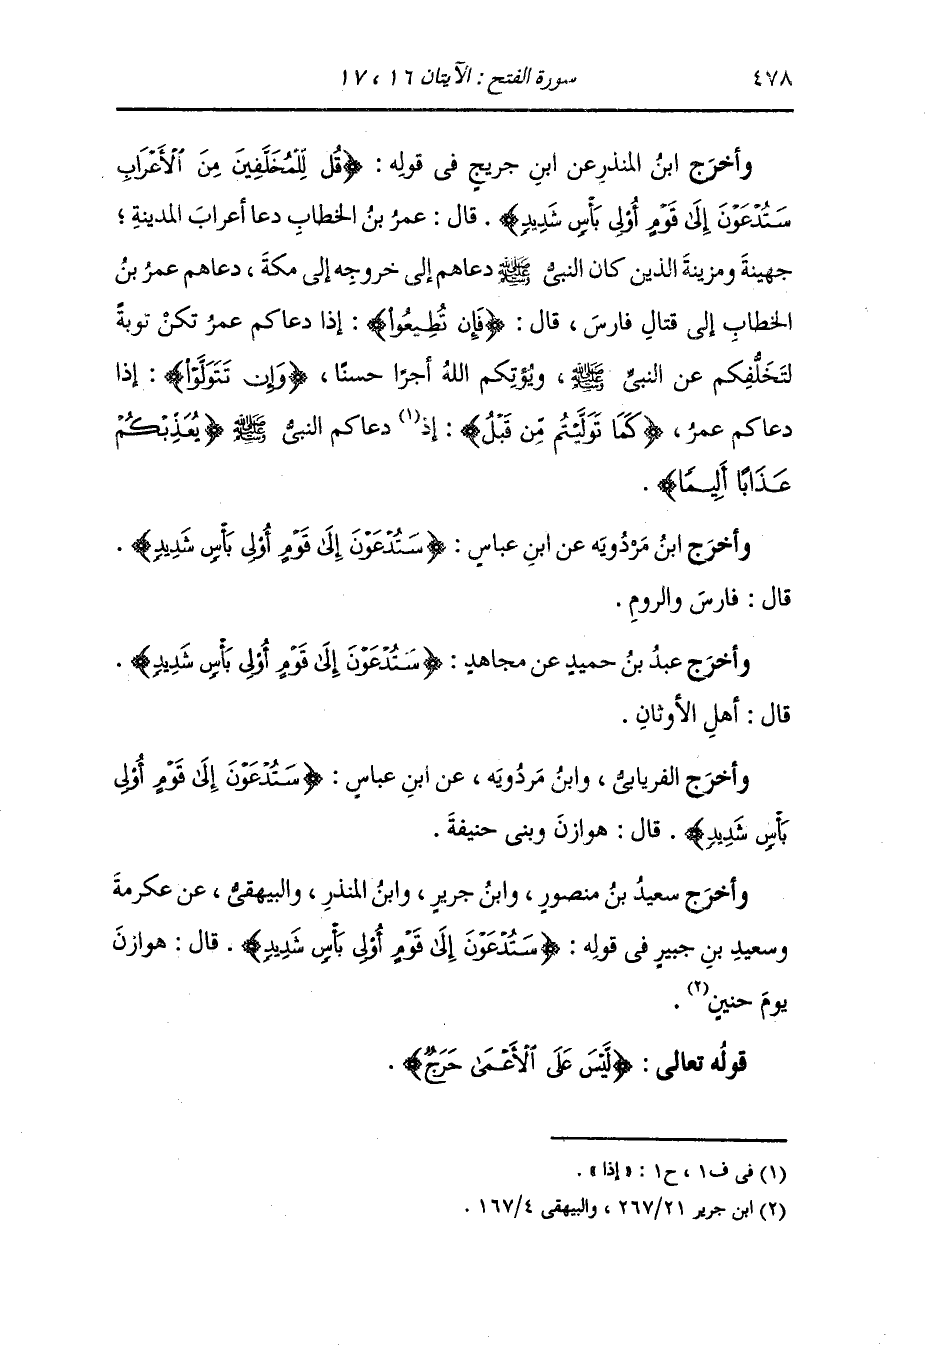 ٤٧٨ سورة الفتح : الآيتان ١٦ ، ١٧
وأخرَج ابنُ المنذرِ عن ابنِ جريجٍ فى قولِه : ﴿قُل لِّلْمُخَلَّفِينَ مِنَ ٱلْأَعْرَابِ
سَتُدْعَوْنَ إِلَىٰ قَوْمٍ أُوْلِى بَأْسٍ شَدِيدٍ﴾ . قال : عمرُ بنُ الخطابِ دعا أعرابَ المدينةِ ؛
جهينةَ ومزينةَ الذين كان النبىُّ ﷺ دعاهم إلى خروجِه إلى مكةَ ، دعاهم عمرُ بنُ
الخطابِ إلى قتالِ فارسَ ، قال : ﴿فَإِن تُطِيعُوا۟﴾ : إذا دعاكم عمرُ تكنْ توبةً
لتَخَلُّفِكم عن النبىِّ ﷺ ، ويُؤتِكم اللهُ أجرًا حسنًا ، ﴿وَإِن تَتَوَلَّوْا۟﴾ : إذا
دعاكم عمرُ ، ﴿كَمَا تَوَلَّيْتُم مِّن قَبْلُ﴾ : إذ(١) دعاكم النبىُّ ﷺ ﴿يُعَذِّبْكُمْ
عَذَابًا أَلِيمًا﴾ .
وأخرَج ابنُ مَرْدُويَه عن ابنِ عباسٍ : ﴿سَتُدْعَوْنَ إِلَىٰ قَوْمٍ أُوْلِى بَأْسٍ شَدِيدٍ﴾ .
قال : فارسَ والرومِ .
وأخرَج عبدُ بنُ حميدٍ عن مجاهدٍ : ﴿سَتُدْعَوْنَ إِلَىٰ قَوْمٍ أُوْلِى بَأْسٍ شَدِيدٍ﴾ .
قال : أهلِ الأوثانِ .
وأخرَج الفريابىُّ ، وابنُ مَردُويَه ، عن ابنِ عباسٍ : ﴿سَتُدْعَوْنَ إِلَىٰ قَوْمٍ أُوْلِى
بَأْسٍ شَدِيدٍ﴾ . قال : هوازنَ وبنى حنيفةَ .
وأخرَج سعيدُ بنُ منصورٍ ، وابنُ جريرٍ ، وابنُ المنذرِ ، والبيهقىُّ ، عن عكرمةَ
وسعيدِ بنِ جبيرٍ فى قولِه : ﴿سَتُدْعَوْنَ إِلَىٰ قَوْمٍ أُوْلِى بَأْسٍ شَدِيدٍ﴾ . قال : هوازنَ
يومَ حنينٍ(٢) .
قولُه تعالى : ﴿لَّيْسَ عَلَى ٱلْأَعْمَىٰ حَرَجٌ﴾ .
(١) فى ف١ ، ح١ : « إذا » .
(٢) ابن جرير ٢٦٧/٢١ ، والبيهقى ١٦٧/٤ .